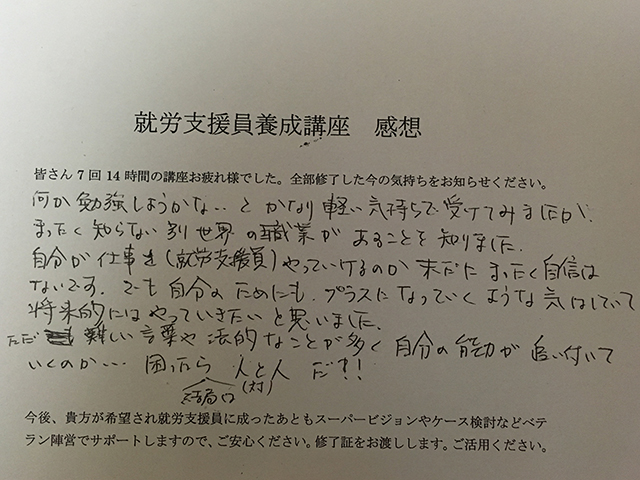 就労支援員養成講座　感想
皆さん7回14時間の講座お疲れ様でした。全部修了した今の気持ちをお知らせください。
何か勉強しようかな‥と かなり軽い気持ちで受けてみましたが、
まったく知らない別世界の職業があることを知りました。
自分が仕事を(就労支援員)やっていけるのか 未だに まったく自信は
ないです。でも自分のためにも、プラスになっていくような気はしていて
将来的にはやっていきたいと思いました。
ただ 難しい言葉や法的なことが多く 自分の能力が追い付いて
いくのか… 困ったら 人と人 だ!!
結局は (対)
今後、貴方が希望され就労支援員に成ったあともスーパービジョンやケース検討などベテ
ラン陣営でサポートしますので、ご安心ください。修了証をお渡しします。ご活用ください。